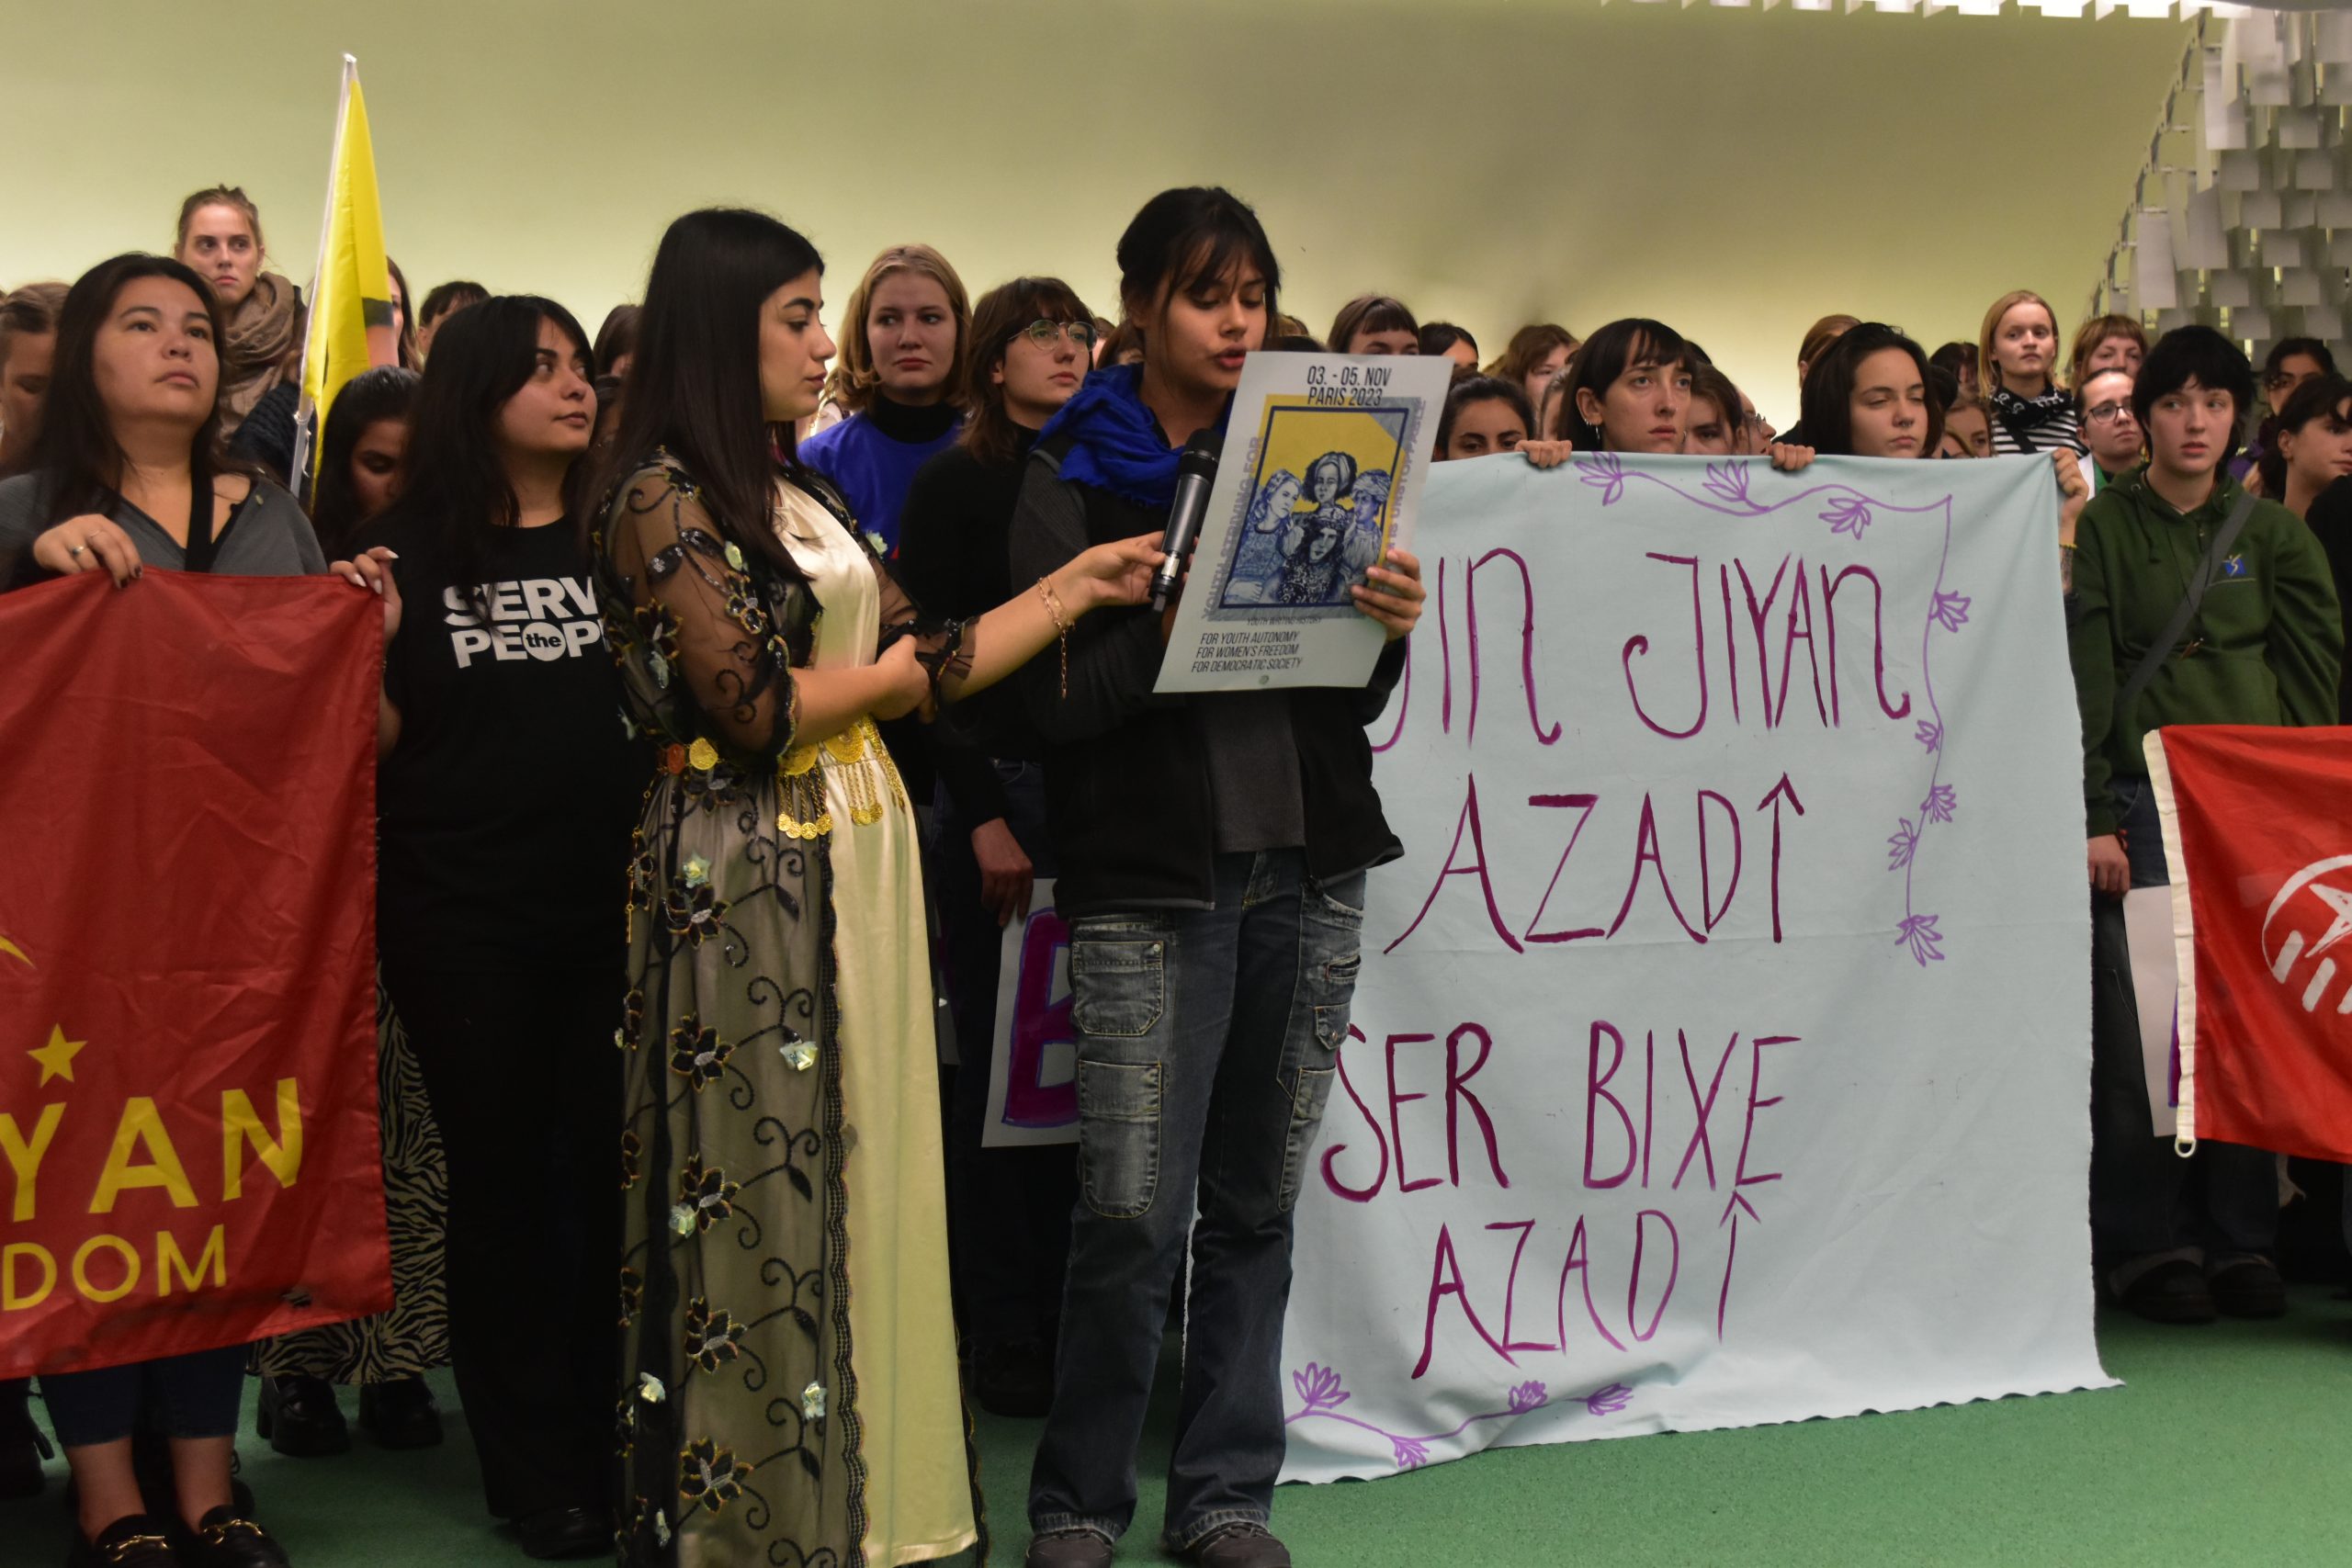 03. - 05. NOV
PARIS 2023
YOUTH STRIVING FOR
YOUTH WRITING HISTORY
FOR YOUTH AUTONOMY
FOR WOMEN'S FREEDOM
FOR DEMOCRATIC SOCIETY
SERV
the
PEOP
YAN
DOM
JIN JIYAN
AZADÎ
SER BIXE
AZADÎ
B